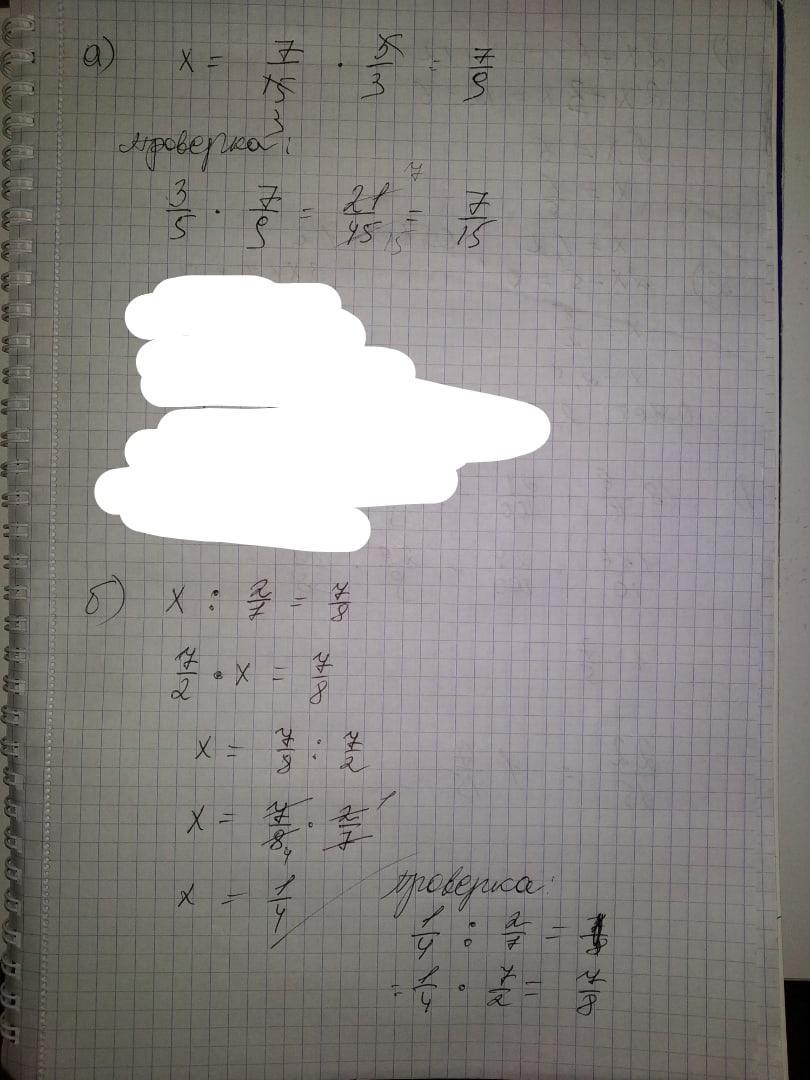 а) x = 7/15 3 · 5/3 = 7/9
Проверка:
3/5 · 7/9 = 21/45 7 15 = 7/15
б) x : 2/7 = 7/8
7/2 · x = 7/8
x = 7/8 : 7/2
x = 7/8 4 · 2/7 1
x = 1/4
Проверка:
1/4 : 2/7 =
= 1/4 · 7/2 = 7/8